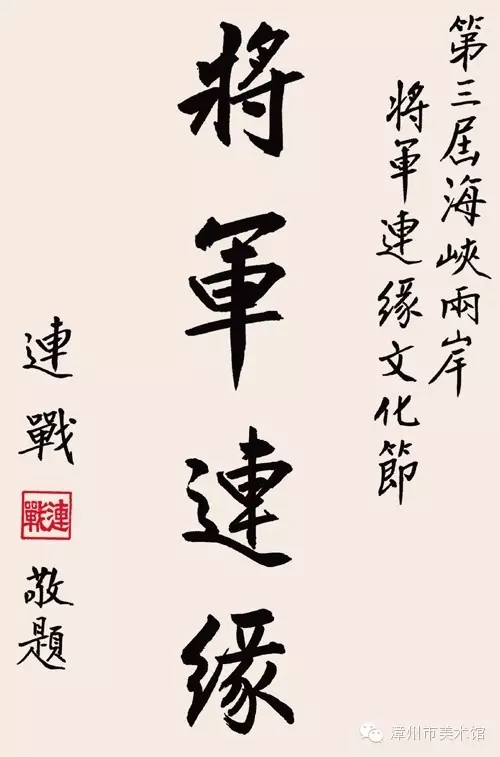 第三届海峽兩岸
將軍連緣文化節
將軍連緣
連戰
連戰
敬題
漳州市美术馆